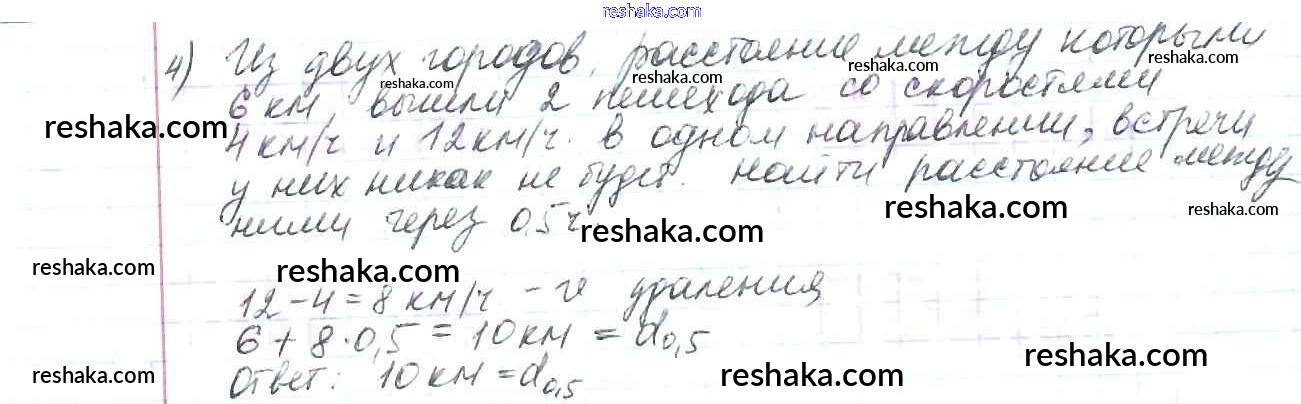 reshaka.com
4) Из двух городов, расстояние между которыми
reshaka.com reshaka.com reshaka.com reshaka.com
6 км, вышли 2 пешехода со скоростями
reshaka.com reshaka.com
4 км/ч и 12 км/ч. в одном направлении, встречи
у них никак не будет. Найти расстояние между
reshaka.com reshaka.com
ними через 0,5 ч.
reshaka.com
reshaka.com reshaka.com
12 - 4 = 8 км/ч - v удаления
6 + 8 · 0,5 = 10 км = d0,5
reshaka.com
Ответ: 10 км = d0,5
reshaka.com reshaka.com